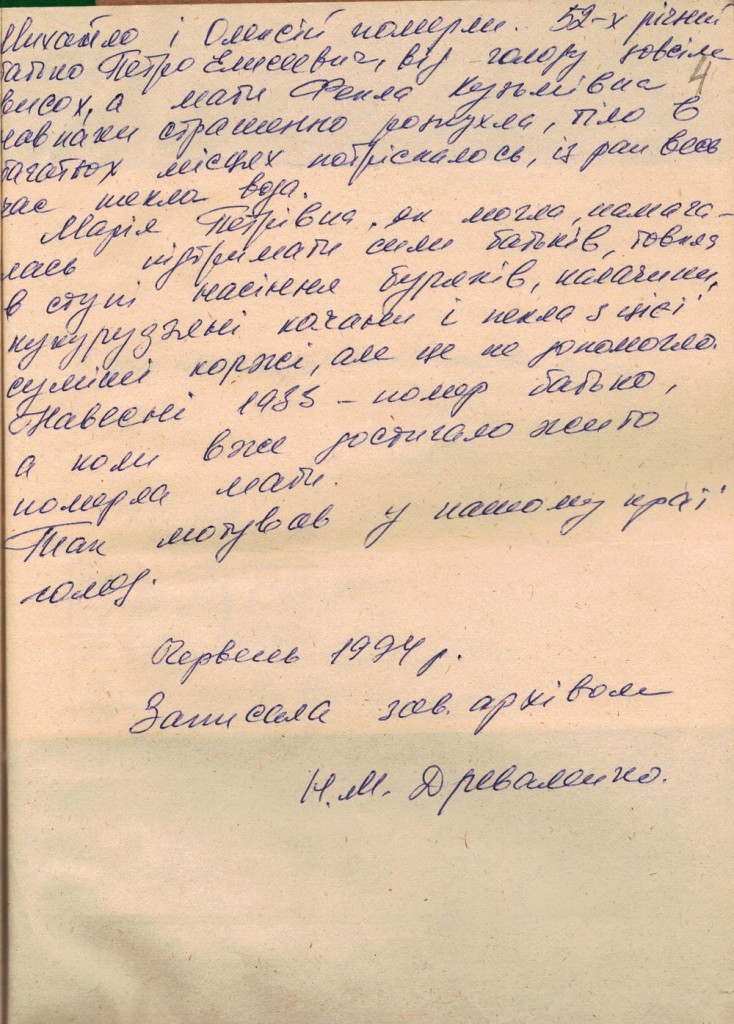 Михайло і Олексій померли. 52-х річний
батько Петро Елисеевич, від голоду зовсім
4
висох, а мати Фекла Кузьмівна
навпаки страшенно розпухла, тіло в
багатьох місцях потріскалось, із ран весь
час текла вода.
Марія Петрівна, як могла, намага-
лась підтримати сили батьків, товкла
в ступі насіння буряків, качани,
кукурудзяні качани і пекла з цієї
суміші коржі, але це не допомогло.
Навесні 1933 – помер батько,
а коли вже достигало жито
померла мати.
Так лютував у нашому краї
голод.
Червень 1994 р.
Записала зав. архівом
Н.М. Древаленко.